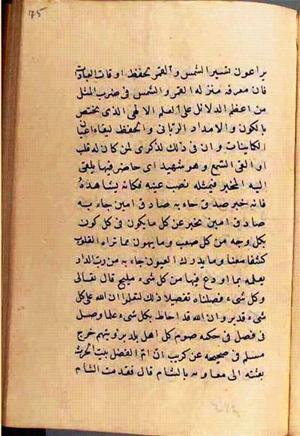 ٧٥
يراعون تسيير الشمس والقمر لحفظ اوقات العبادات
فان معرفة منزله القمر والشمس في ضرب المثل
من اعظم الدلائل على العلم الالهي الذي يختص
بالكون والامداد الرباني والحفظ لبقاء اعيان
الكاينات وان في ذلك لذكرى لمن كان له قلب
او القى السمع وهو شهيد اي حاضر فيما يلقى
اليه المخبر فيمثله نصب عينه فكانه يشاهده
فانه خبر صدق جاء به صادق امين جاء به
صادق امين يخبر عن كل ما يكون في كل كون
بكل وجه من كل صعب وما يهون مما تراه القلوب
كشفا معنا وما يدرك العيون جاء به من رب الدار
يعلمه بما اودع فيها من كل شيء مليح قال تعالى
وكل شيء فصلناه تفصيلا ذلك لتعلموا ان الله على كل
شيء قدير وان الله قد احاط بكل شيء علما وصل
في فصل في حكمه صوم كل اهل بلد برؤيتهم خرج
مسلم في صحيحه عن كريب ان ام الفضل بنت الحرث
بعثته الى معاوية بالشام قال فقدمت الشام